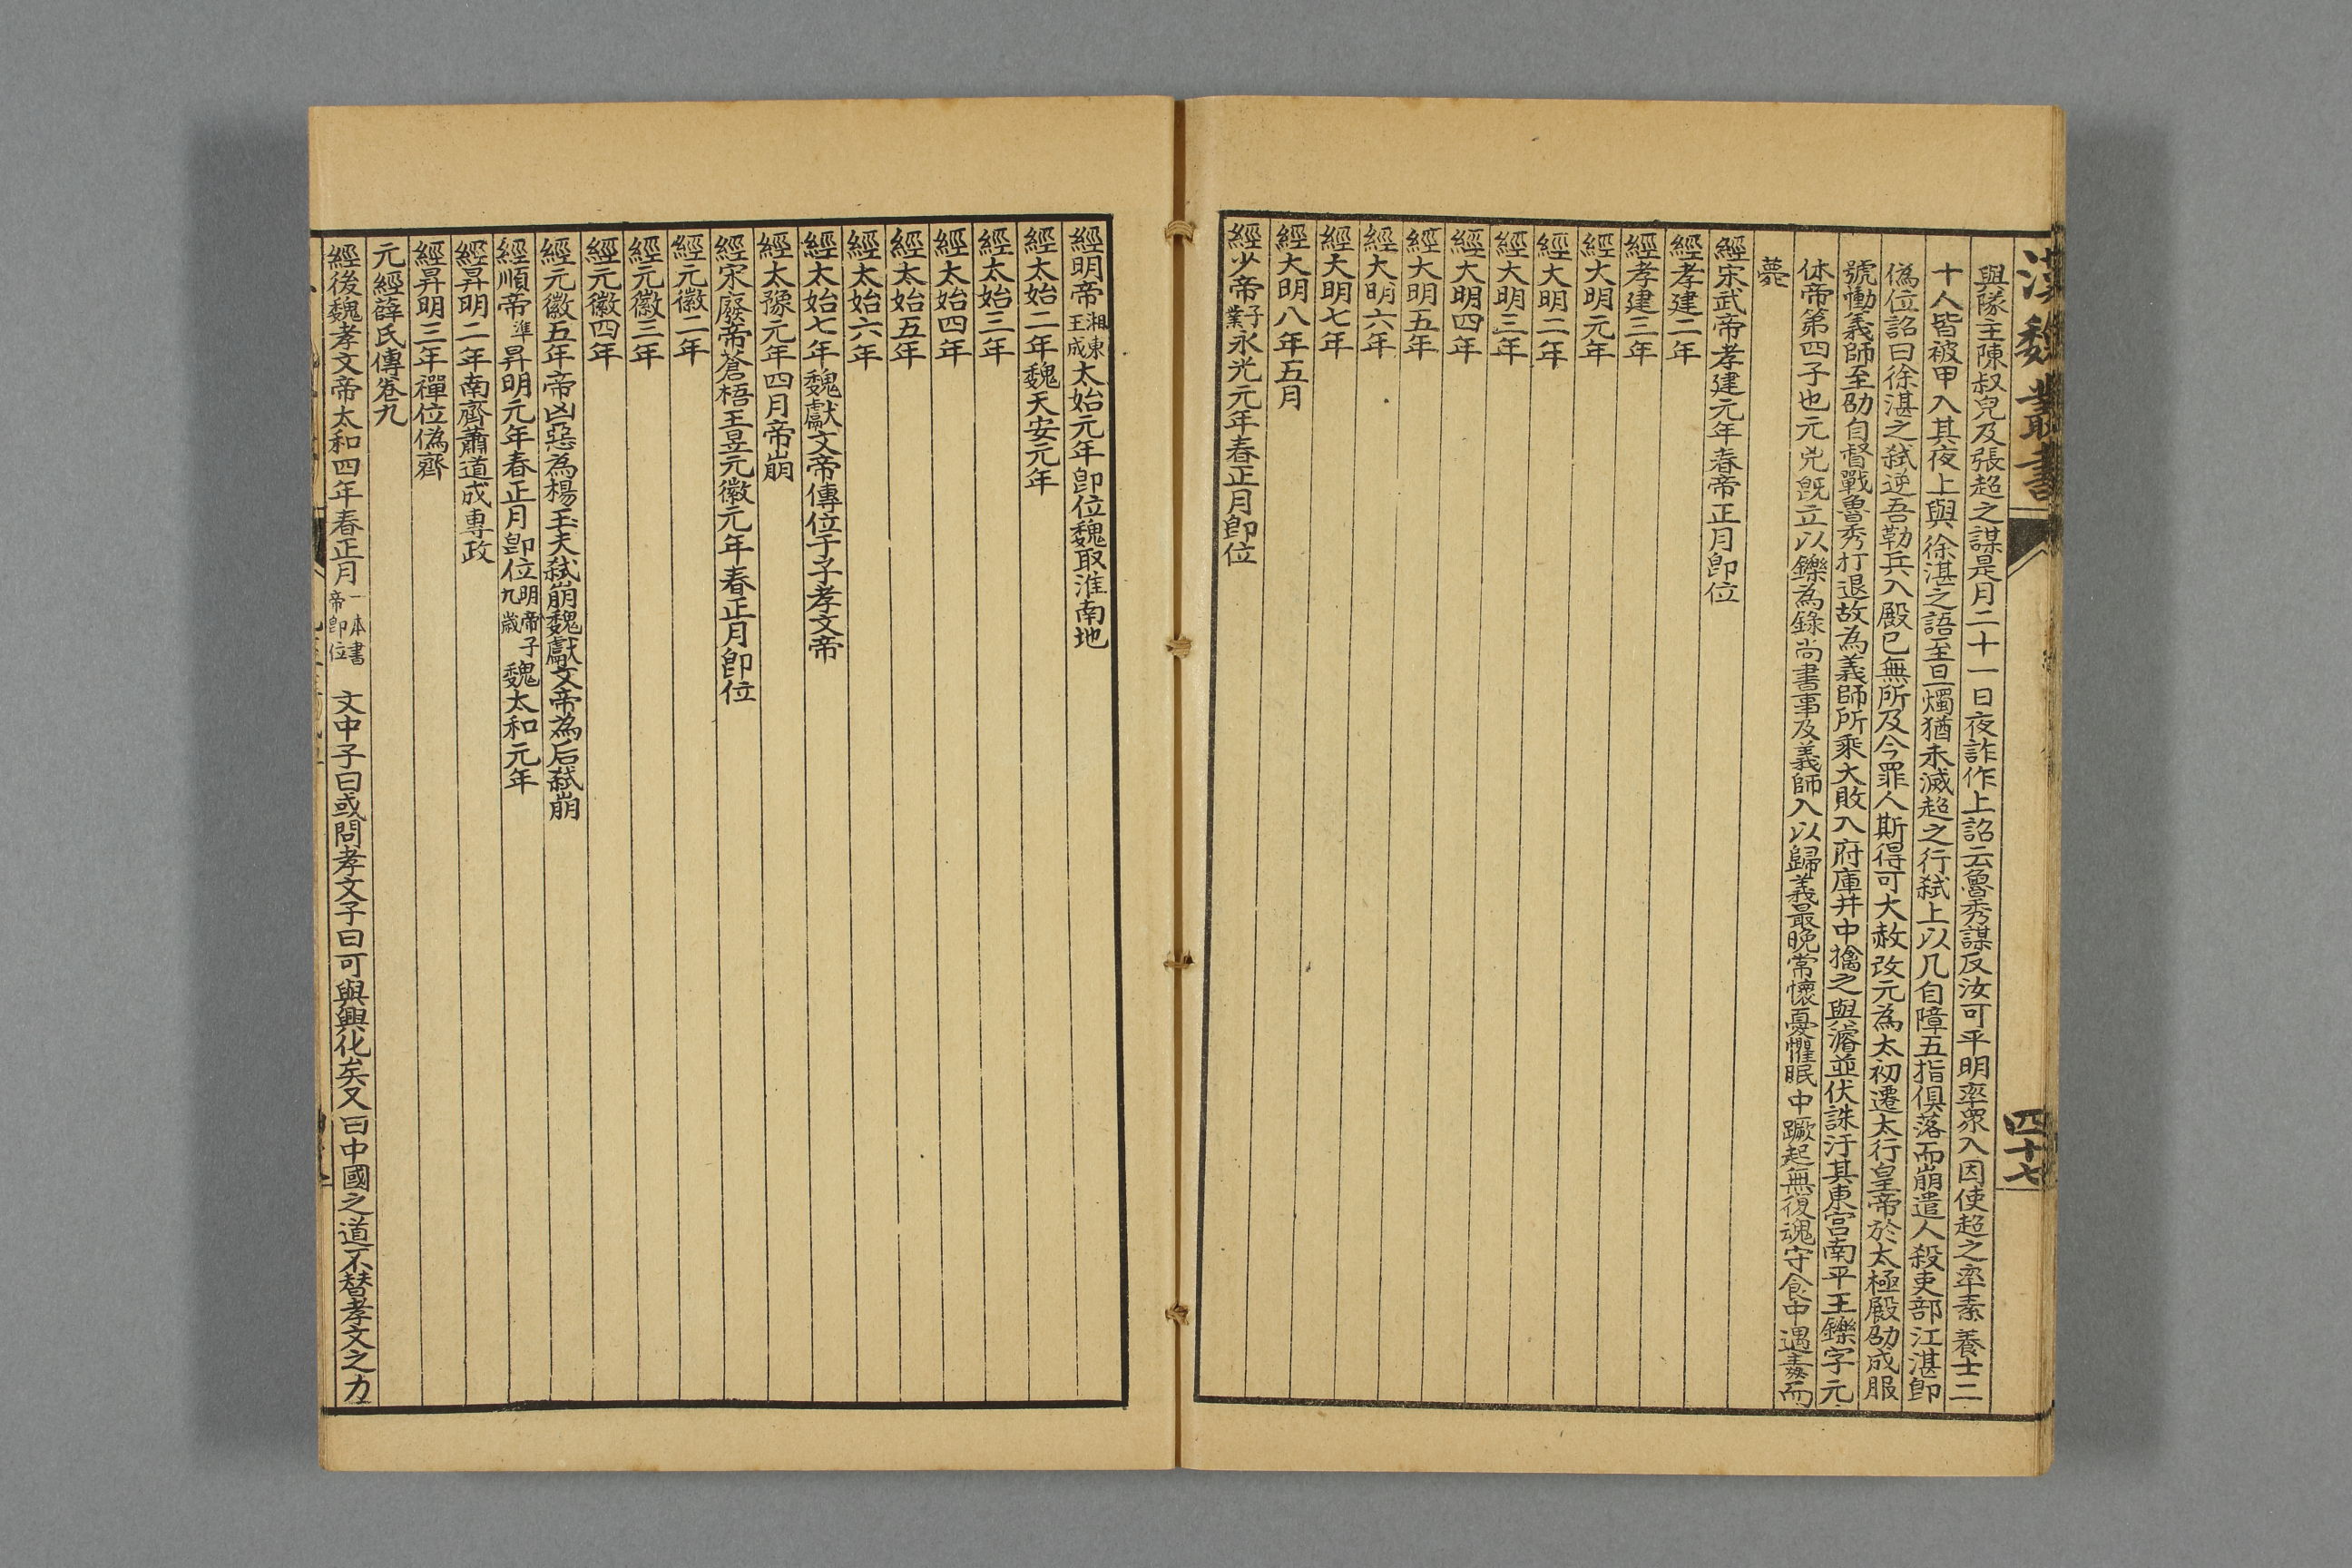 漢魏叢書
四十七
與隊主陳叔兒及張超之謀是月二十一日夜詐作上詔云魯秀謀反汝可平明率眾入因使超之率素養士二
十人皆被甲入其夜上與徐湛之語至旦燭猶未滅超之行弒上以几自障五指俱落而崩遣人殺吏部江湛卽
偽位詔曰徐湛之弒逆吾勒兵入殿已無所及今罪人斯得可大赦改元為太初遷太行皇帝於太極殿劭成服
號慟義師至劭自督戰魯秀打退故為義師所乘大敗入府庫井中擒之與濬並伏誅汙其東宮南平王鑠字元
休帝第四子也元兇旣立以鑠為錄尚書事及義師入以歸義最晚常懷憂懼眠中蹶起無復魂守食中遇毒而
薨
經宋武帝孝建元年春帝正月卽位
經孝建二年
經孝建三年
經大明元年
經大明二年
經大明三年
經大明四年
經大明五年
經大明六年
經大明七年
經大明八年五月
經少帝子業永光元年春正月卽位
經明帝湘東王彧太始元年卽位魏取淮南地
經太始二年魏天安元年
經太始三年
經太始四年
經太始五年
經太始六年
經太始七年魏獻文帝傳位于子孝文帝
經太豫元年四月帝崩
經宋廢帝蒼梧王昱元徽元年春正月卽位
經元徽二年
經元徽三年
經元徽四年
經元徽五年帝凶惡為楊玉夫弒崩魏獻文帝為后弒崩
經順帝準昇明元年春正月卽位明帝子九歲魏太和元年
經昇明二年南齊蕭道成專政
經昇明三年禪位偽齊
元經薛氏傳卷九
經後魏孝文帝太和四年春正月一本書帝卽位 文中子曰或問孝文子曰可與興化矣又曰中國之道不替孝文之力